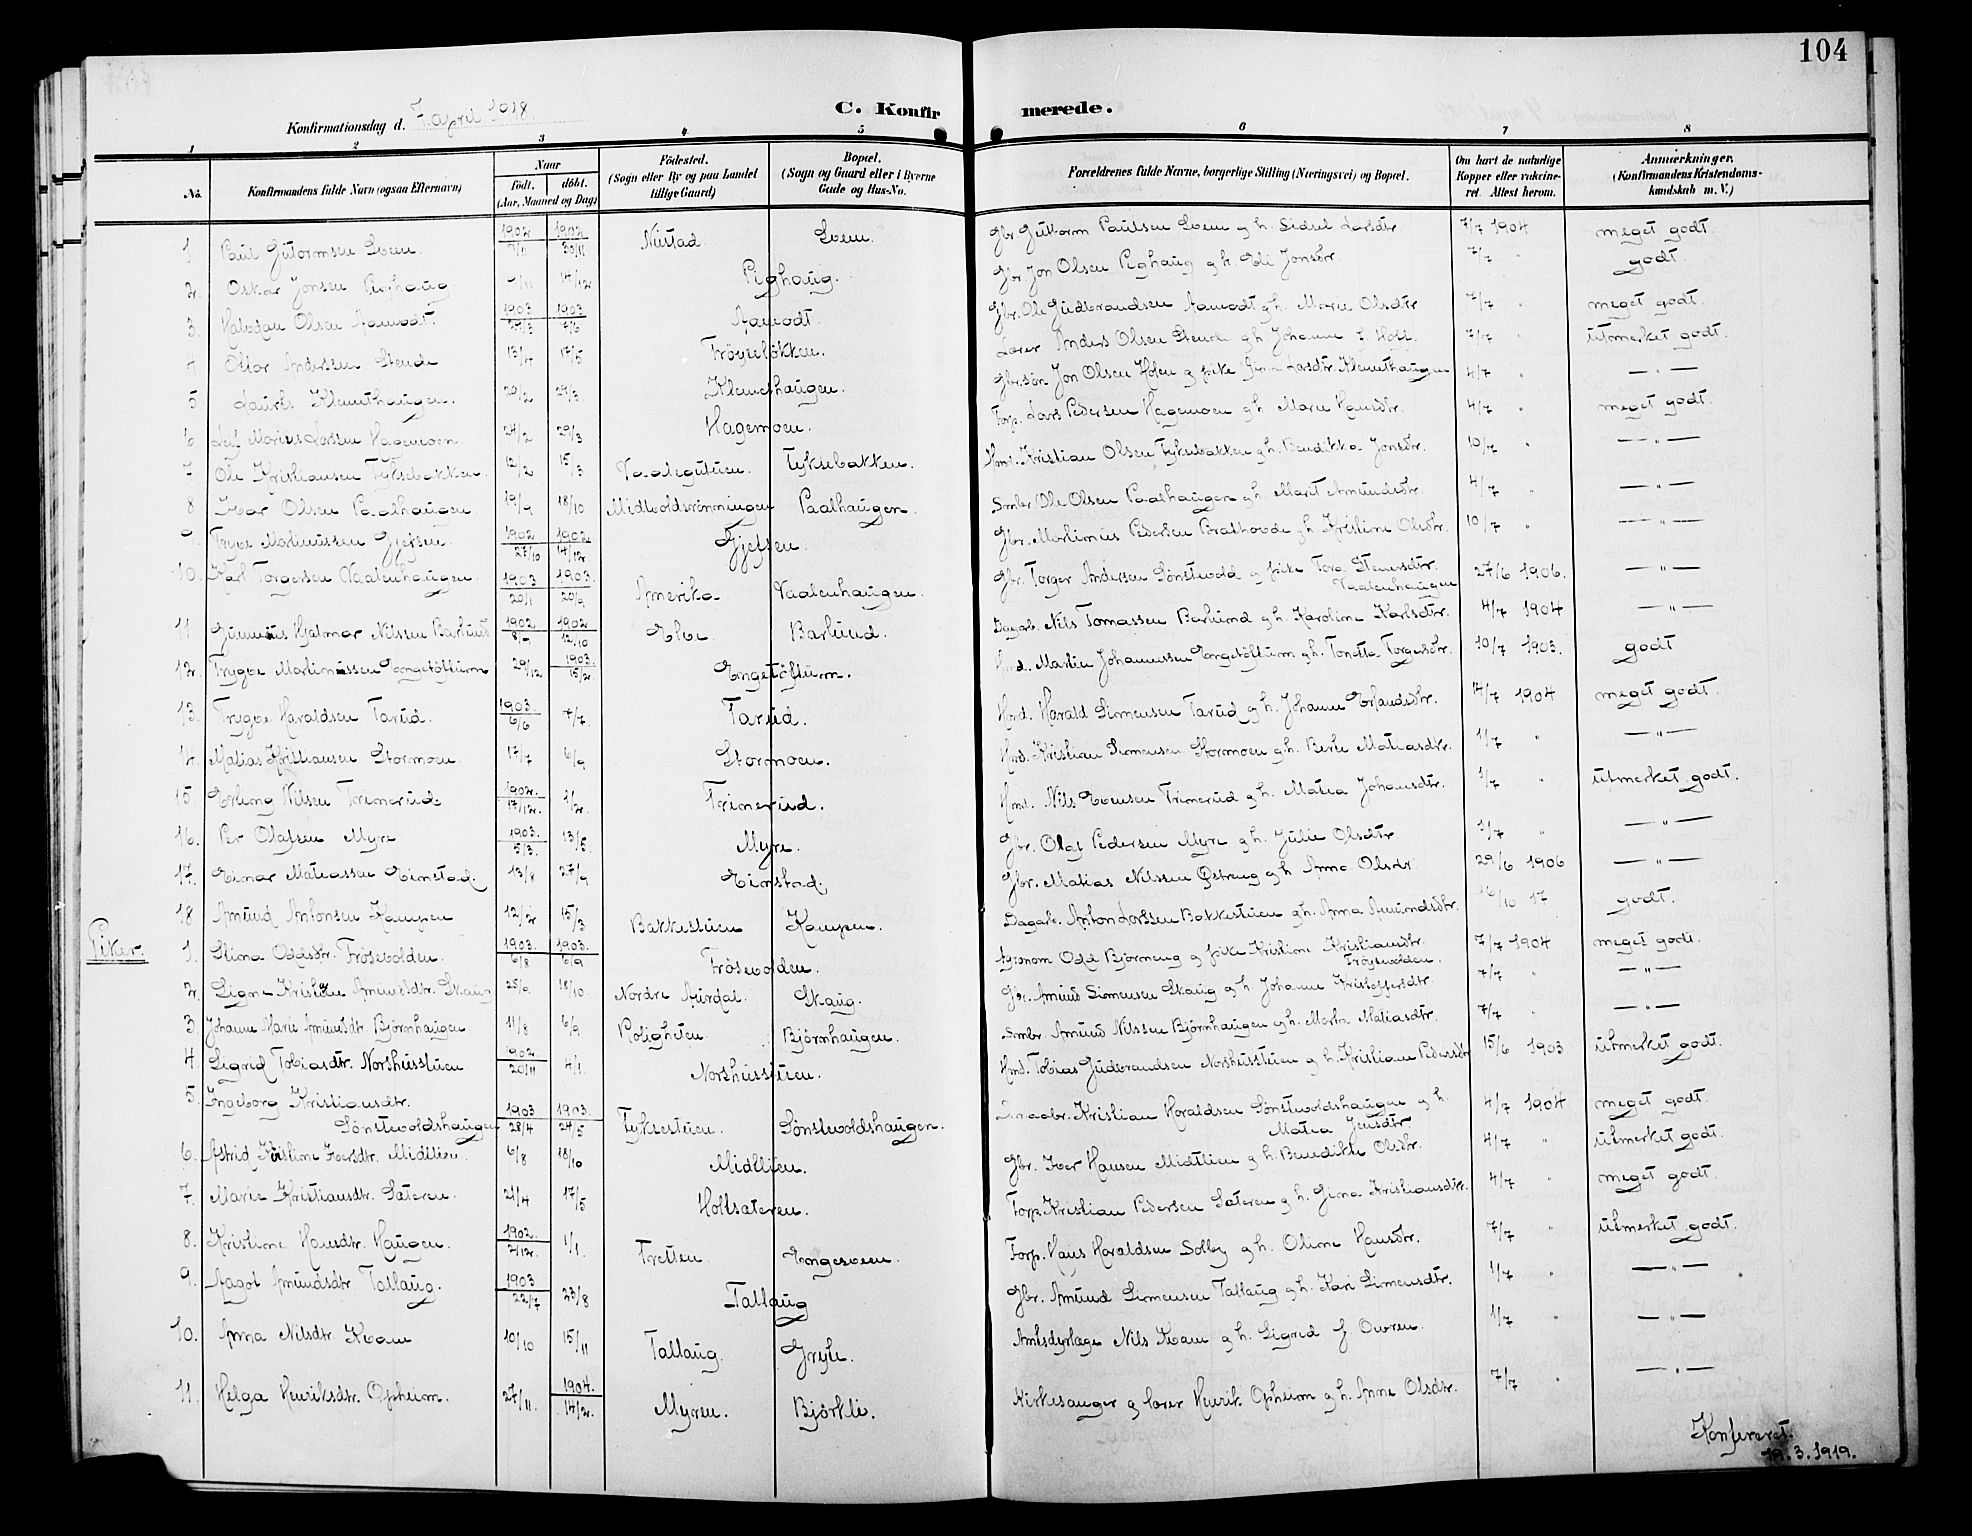 104
Konfirmationsdag d. 7. april 1918.
C. Konfirmerede.
1 2 3 4 5 6 7 8
No. Konfirmandens fulde Navn (ogsaa Efternavn) Naar født. døbt. (Aar, Maaned og Dag) Fødested. (Sogn eller By og paa Landet tillige Gaard) Bopæl. (Sogn og Gaard eller i Byerne Gade og Hus-No. Forældrenes fulde Navne, borgerlige Stilling (Næringsvei) og Bopæl. Om havt de naturlige Kopper eller vaccineret. Attest herom. Anmærkninger. (Konfirmandens Kristendomskundskab m. V.)
1 Paul Gutormsen Loen. 1902 7/11 1902 30/11 Nustad Loen. Gbr. Guttorm Paulsen Loen og h. Sidsel Larsdtr. 7/7 1904 meget godt.
2. Oskar Jonsen 11 14/12 Pighaug. Gbr. Jon Olsen Pighaug og h. Eli Jonsdtr. 7/7 " godt
3. Halvdan Olsen Aamodt. 1903 29/3 1903 7/6 Aamodt. Gbr. Ole Gudbrandsen Aamodt og h. Marie Olsdtr 7/7 " meget godt.
4 Ottar Andersen Stende 13/4 17/5 Frøyseløkken. Lærer Anders Olsen Stende og h. Johanne f. Holt. 7/7 " utmerket godt.
5 Laurits Klemethaugen. 20/2 29/3 Klemethaugen. Gbr.søn Jon Olsen Hølen og pike Larsdtr. Klemethaugen 4/7 " — " —
6 Leif Marius Larssen Hagemoen. 24/2 29/3 Hagemoen. Forp. Lars Pedersen Hagemoen og h. Marie Hansdtr. 4/7 " meget godt.
7 Ole Kristiansen Fyksebakken. 12/2 15/3 Fyksebakken. Hmd. Kristian Olsen Fyksebakken og h. Benedikta Jonsdtr. 10/7 " — " —
8 Ivar Olsen Paalhaugen. 19/9 18/10 Midtvoldsrønningen Paalhaugen. Smbr. Ole Olsen Paalhaugen og h. Marit Amundsdtr. 4/7 " — " —
9. Trygve Martinussen Gjefsen. 1902 27/10 1902 14/12 Gjefsen. Gbr. Martinus Pedersen Brathovde og h. Kristine Olsdtr. 10/7 " — " —
10. Karl Torgersen Vaalenhaugen. 1903 20/1 1903. 20/9 Amerika Vaalenhaugen. Gbr. Torger Andersen Sønstevold og pike Tora Stenersdtr. Vaalenhaugen 27/6 1906. — " —
11. Gunnvius Hjalmar Nilssen Barlund 1902 8/9 1902 12/10 Elve Barlund. Dagarb. Nils Tomassen Barlund og h. Karoline Karlsdtr. 4/7 1904 — " —
12. Trygve Martinussen Engetøftum 29/12 1903. 15/2. Engetøftum. Hmd. Martin Johannessen Engetøftum og h. Tonetta Torgersdtr. 10/7 1903. godt
13. Trygve Haraldsen Tarud. 1903. 6/6 7/7. Tarud. Hmd. Harald Simensen Tarud og h. Johanne Erlandsdtr. 14/7 1904 meget godt.
14. Matias Kristiansen Stormoen. 17/7 6/9 Stormoen. Hmd. Kristian Simensen Stormoen og h. Berte Matiasdtr. 1/7 " — " —
15. Erling Nilsen Trinerud. 1902. 17/12. 1/2. Trinerud. Hmd. Nils Evensen Trinerud og h. Matea Johansdtr. 1/7 " utmerket godt.
16. Per Olafsen Myre 1903. 5/3. 13/5. Myre. Gbr. Olaf Pedersen Myre og h. Julie Olsdtr 1/7 " — " —
17. Einar Matiassen Einstad. 13/8 27/9 Einstad. Gbr. Matias Nilssen Østeng og h. Anna Olsdr. 29/6 1906 — " —
18 Amund Antonsen Kampen 12/2 15/3 Bakkestuen Kampen. Dagarb. Anton Larssen Bakkestuen og h. Anna Amundsdtr. 16/10 17 godt.
Piker.
1. Stina Oddsdtr. Frøsevolden. 1903. 6/8 1903. 6/9 Frøsevolden. Agronom Odd Bjørneng og pike Kristine Kristiansdtr. Frøysevolden. 7/7 1904 meget godt.
2. Signe Kristine Amundsdtr. Skaug 25/9 18/10. Nordre Aurdal. Skaug. Gbr. Amund Simensen Skaug og h. Johanne Kristoffersdtr. 7/7 " — " —
3. Johanne Marie Amundsdtr. Bjørnhaugen 11/8 6/9 Bjørnhaugen. Smbr. Amund Nilssen Bjørnhaugen og h. Marta Matiasdtr. 7/7 " — " —
4 Sigrid Tobiasdtr. Norshusstuen 1902. 20/11 4/1. Norshusstuen. Hmd. Tobias Gudbrandsen Norshusstuen og h. Kristiane Pedersdtr 15/6 1903 utmerket godt.
5. Ingeborg Kristiansdtr. Sønstevoldshaugen 1903 28/4 1903. 24/5 Fyksestuen. Sønstevoldshaugen. Kristian Haraldsen Sønstevoldshaugen og h. Matea Jensdtr 4/7 1904 meget godt.
6. Astrid Kristine Iversdtr. Midtlien. 6/8 18/10 Midtlien. Gbr. Iver Hansen Midtlien og h. Benedikte Olsdtr. 4/7 " utmerket godt.
7. Marie Kristiansdtr. Sateren. 21/4 17/5 Holtsateren. Forp. Kristian Pedersen Sateren og h. Gina Kristiansdtr. 4/7 " meget godt.
8. Kristine Hansdtr. Haugen. 1902. 2/12. 1/1. Tretten Engesveen. Forp. Hans Haraldsen Solby og h. Oline Hansdtr. 7/7 " utmerket godt.
9. Aagot Amundsdtr. Tallaug. 1903 22/7 23/8 Tallaug Gbr. Amund Simensen Tallaug og h. Kari Simensdtr. 1/7 " — " —
10. Anna Nilsdtr. Kvam 10/10 15/11 Tallaug. Gryte. Amtsdyrlæge Nils Kvam og h. Sigrid f. Owren. 1/7 " — " —
11. Helga Henriksdtr. Opheim. 27/11. 1904. 14/2. Myren. Bjørkli. Kirkesanger og lærer Henrik Opheim og h. Anne Olsdtr. 7/7 " — " —
Konfereret.
19.3.1919.